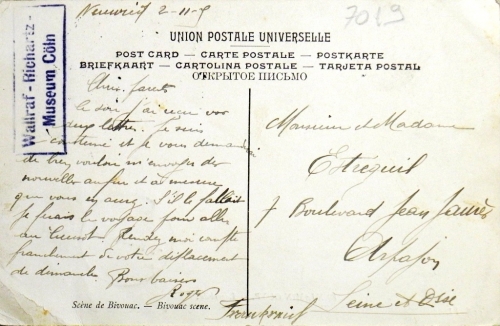 Neuwied 2-11-5
7019
Wallraf-Richartz-
Museum Cöln
UNION POSTALE UNIVERSELLE
POST CARD — CARTE POSTALE — POSTKARTE
BRIEFKAART — CARTOLINA POSTALE — TARJETA POSTAL
ОТКРЫТОЕ ПИСЬМО
ce soir j'ai reçu vos
lettres. Je suis
et je vous demande
de bien vouloir m'envoyer des
nouvelles au fur et à mesure
que vous en aurez. S'il le fallait
je ferais le voyage pour aller
au Rendez moi compte
franchement de votre déplacement
de dimanche Bons baisers
Roger
Scène de Bivouac. — Bivouac scene.
Monsieur et Madame
7 Boulevard Jean Jaurès
Seine et Oise